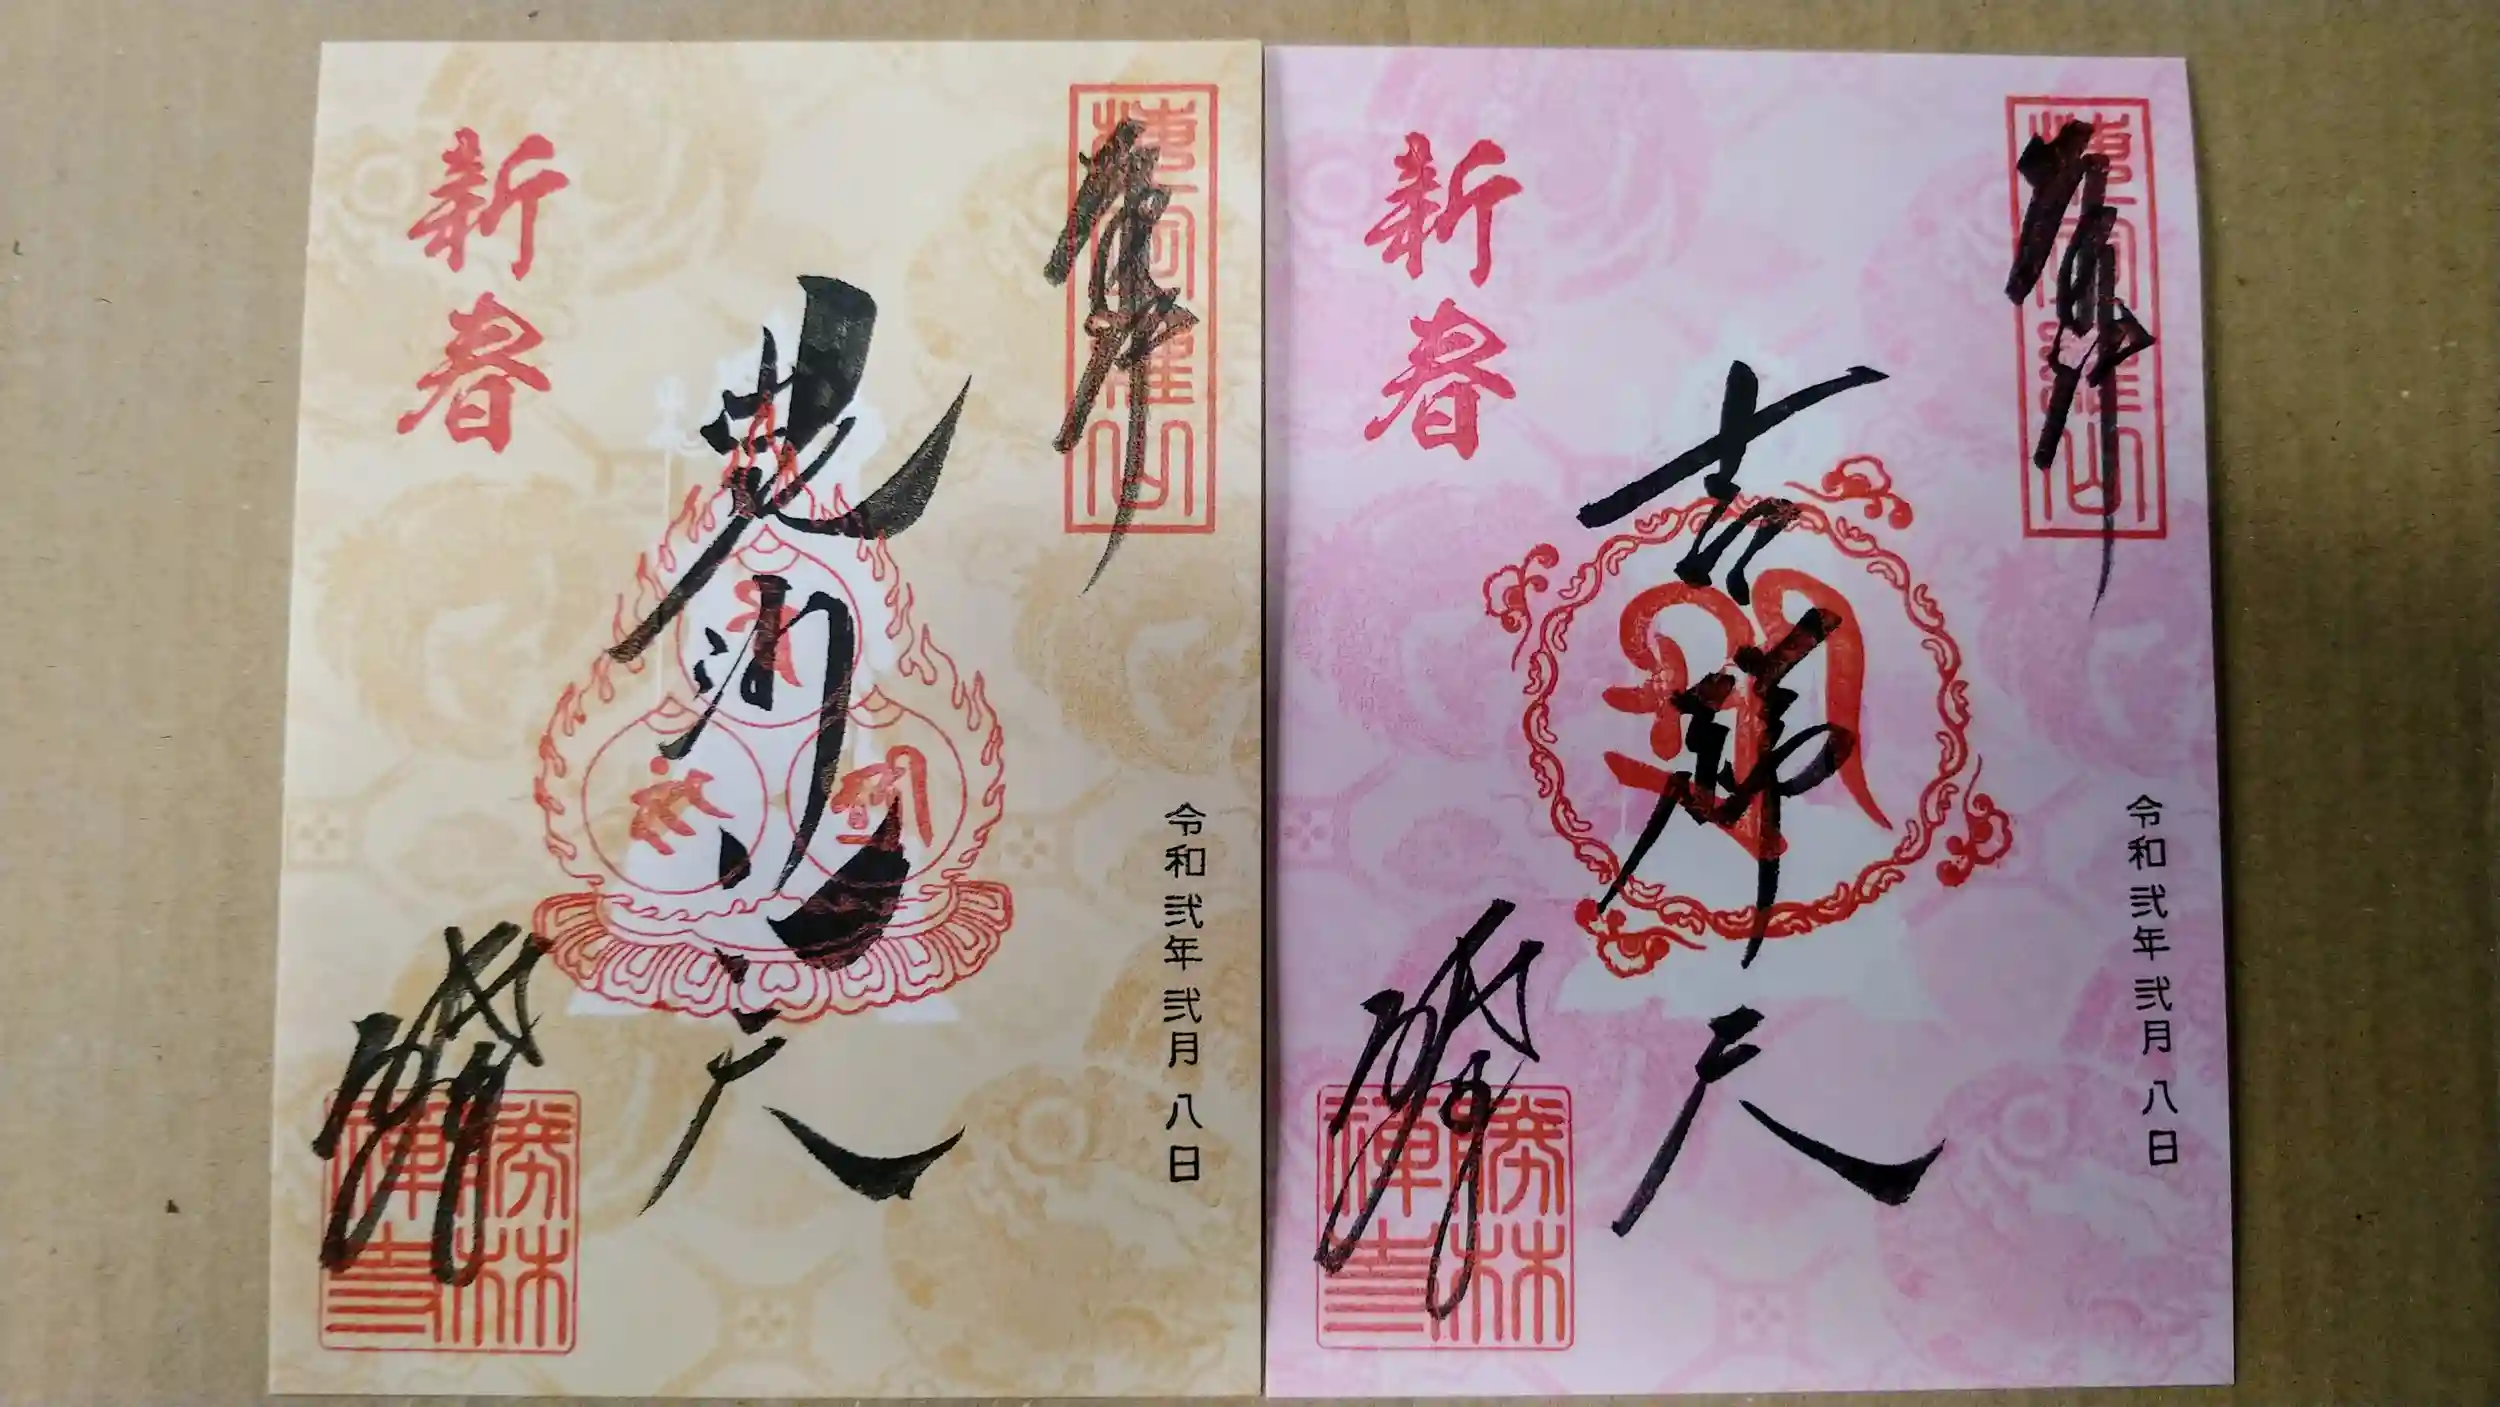 奉拝
新春
毘沙門天
令和弐年弐月八日
勝林禅寺
奉拝
新春
吉祥天
令和弐年弐月八日
勝林禅寺